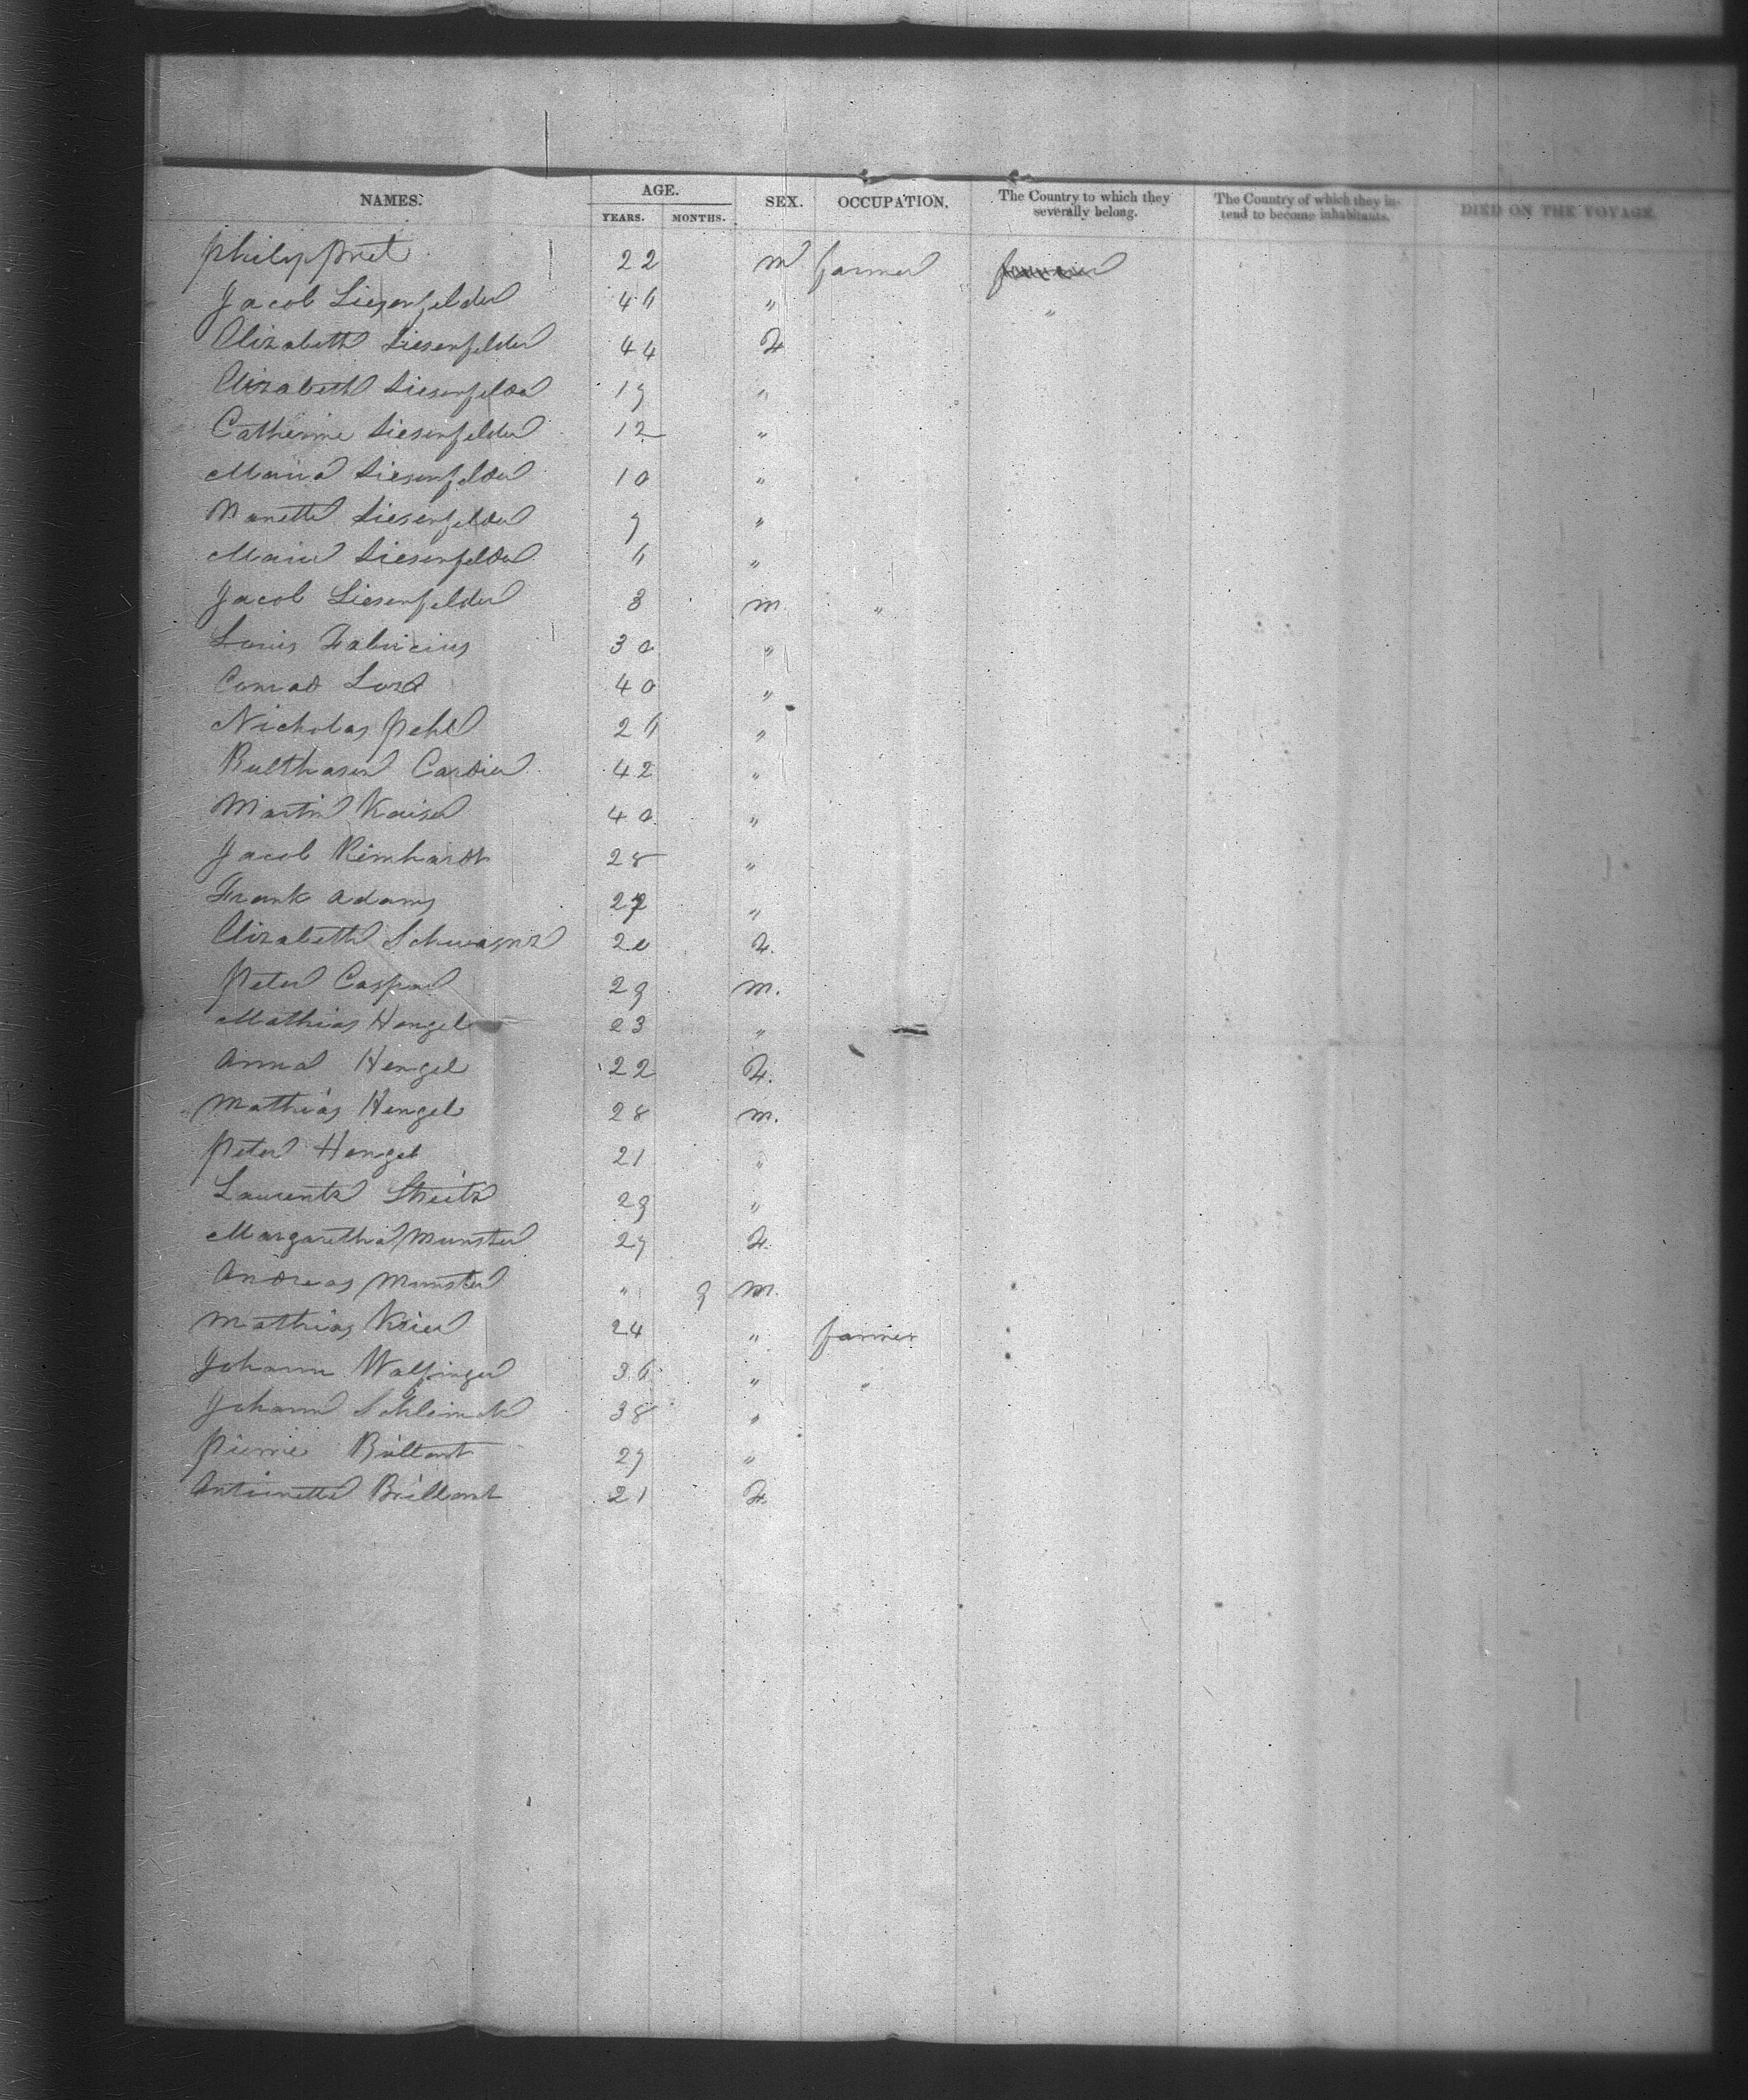 NAMES. AGE. SEX. OCCUPATION. The Country to which they severally belong. The Country of which they intend to become inhabitants. DIED ON THE VOYAGE.
YEARS. MONTHS.
Philip 22 m farmer
Jacob Liesenfelder 46 " "
Elizabeth Liesenfelder 44 F
Elizabeth Liesenfelder 19 "
Catherine Liesenfelder 12 "
Maria Liesenfelder 10 "
Nanette Liesenfelder 9 "
Maria Liesenfelder 6 "
Jacob Liesenfelder 3 m. "
Louis Fabricius 30 "
Conrad 40 "
Nicholas Pehl 26 "
Balthaser Cardier 42 "
Martin Kaiser 40 "
Jacob Reinhardt 28 "
Frank Adams "
Elizabeth 20 F.
Peter Casper 29 m.
Mathias Hengel 23 "
Anna Hengel 22 F.
Mathias Hengel 28 m.
Peter Hengel 21 "
Laurentz Streitz 29 "
Margaretha Munster 27 F.
Andreas Munster " 9 m.
Mathias Krier 24 " farmer
Johann Walfinger 36 " "
Johann 38 "
Pierre Brillant 27 "
Antoinette Brillant 21 F.